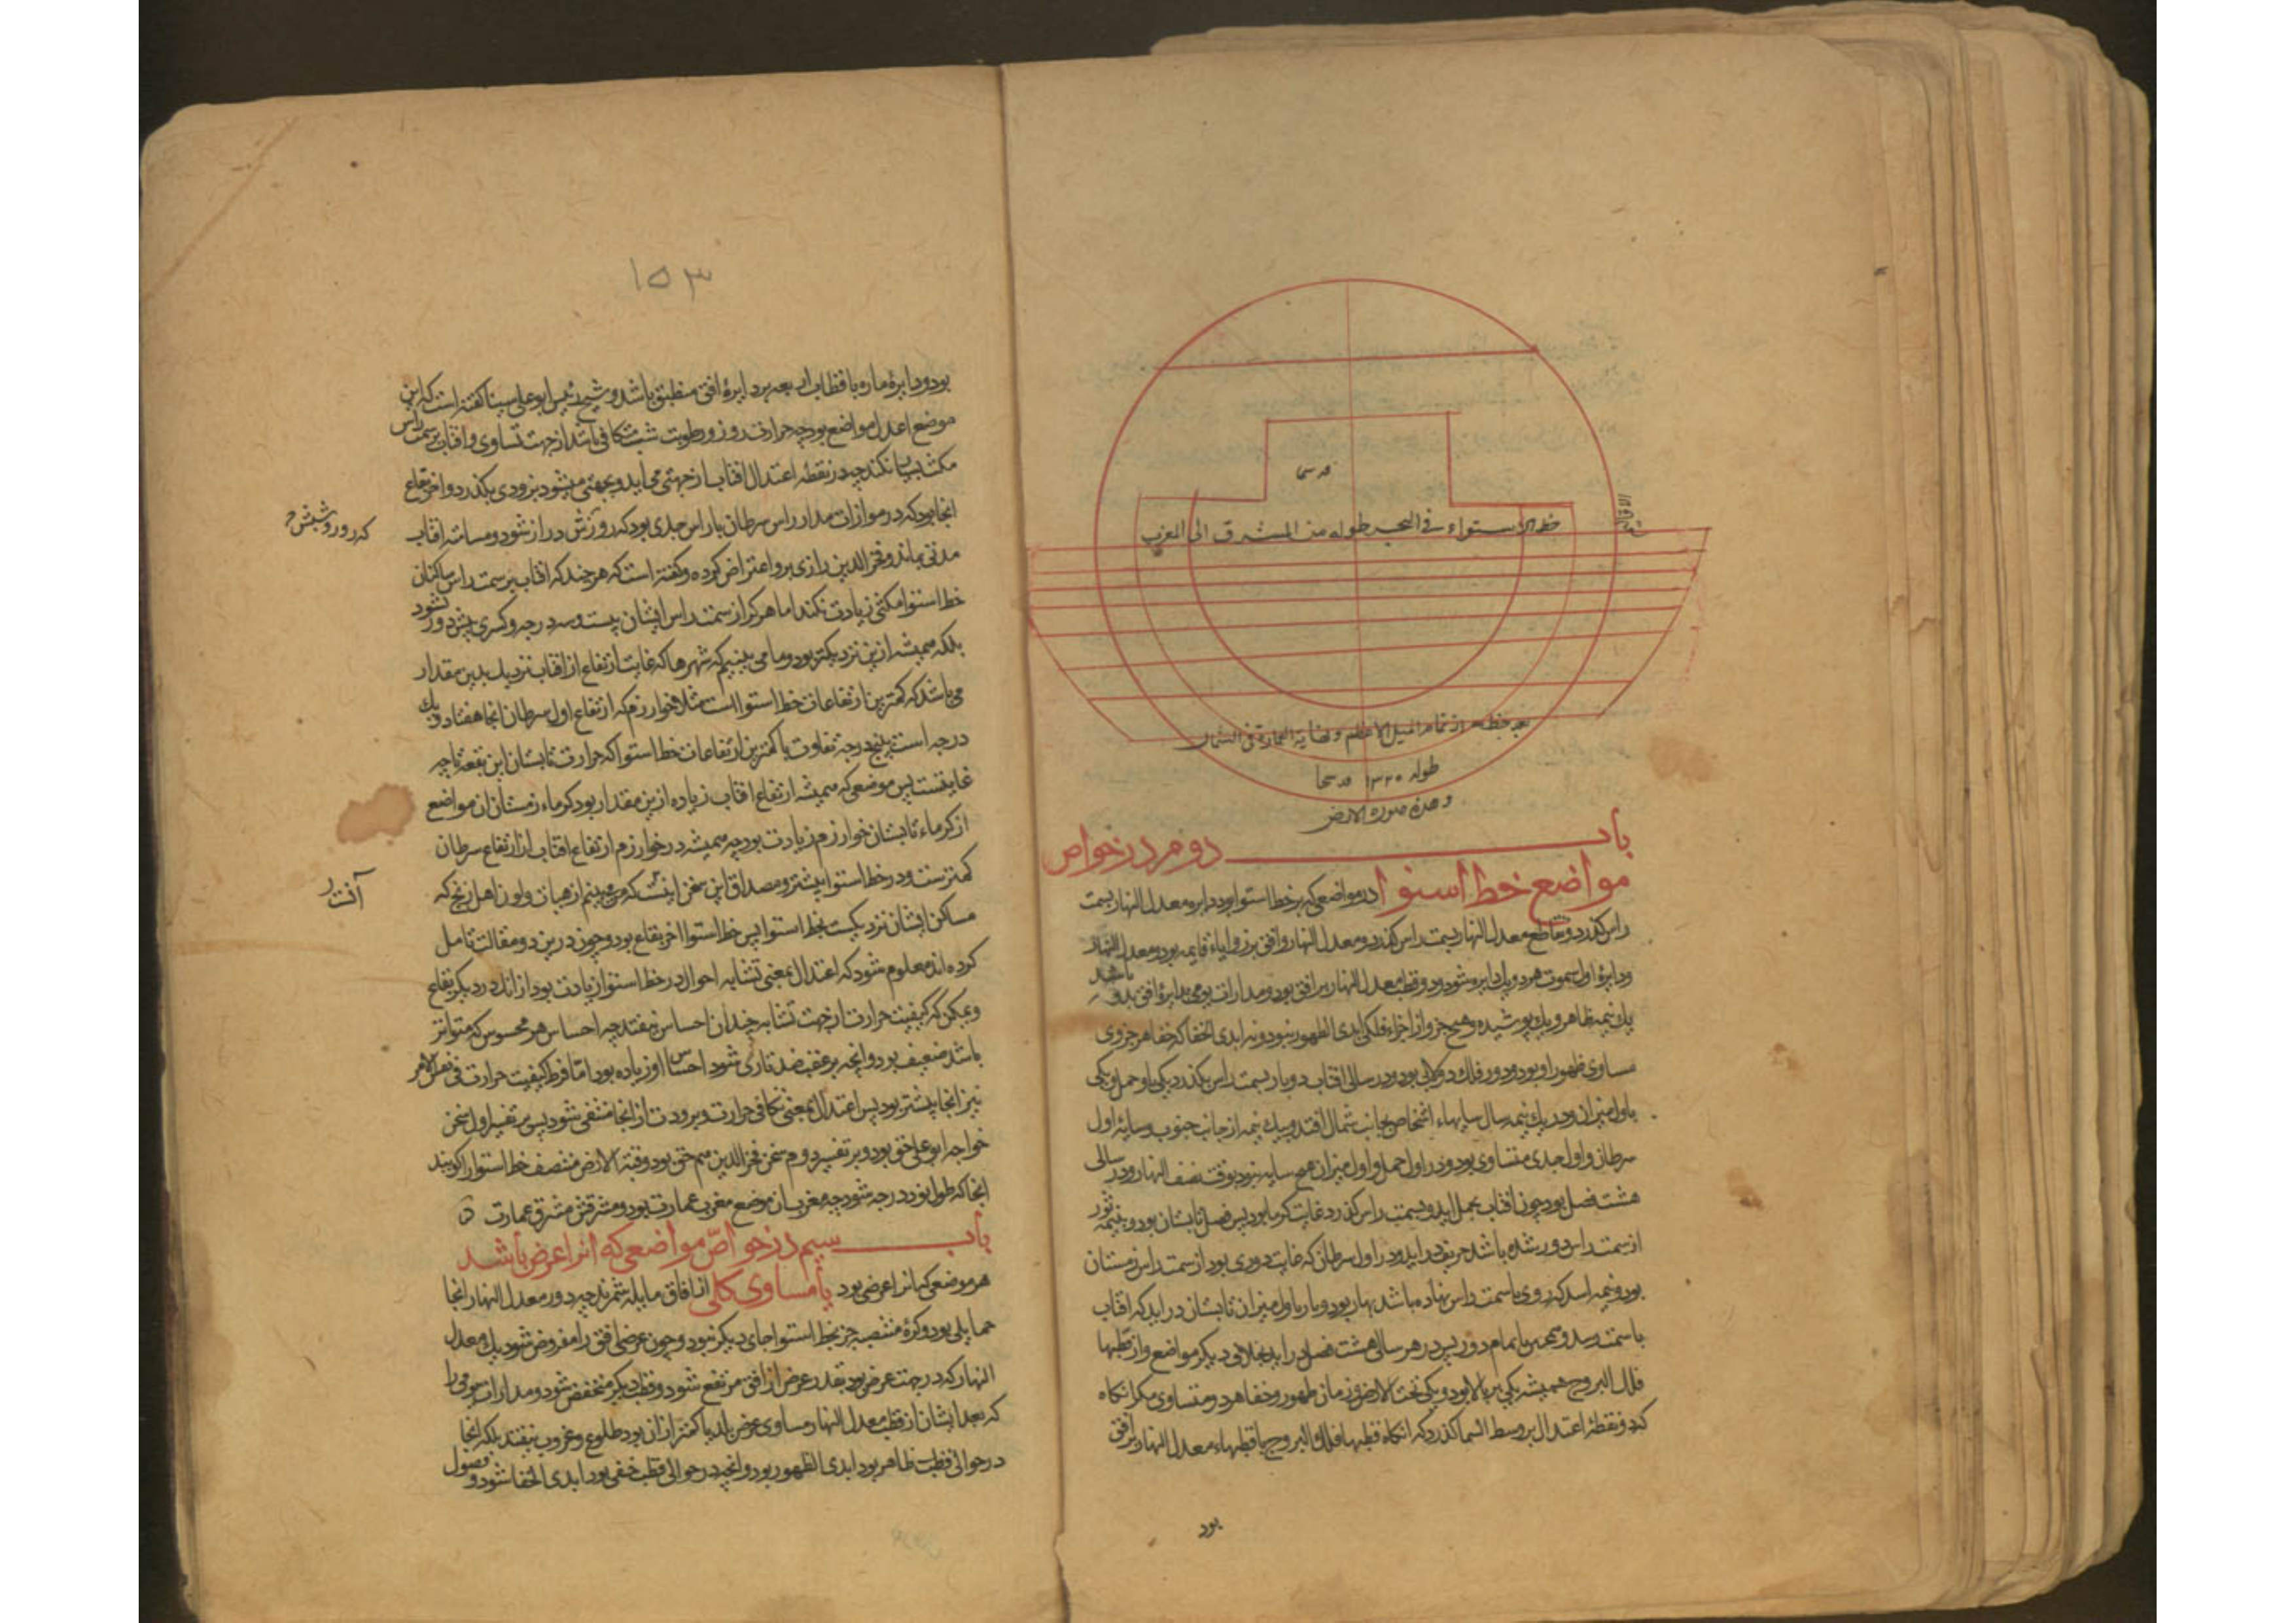 خط الاستواء فی البحر طوله من المشرق الی المغرب
بعد خطه از تمام المیل الاعظم و نهایة العمارة فی الشمال
طوله
وهذه صورة الارض
باب دوم در خواص
مواضع خط استوا در مواضعی که بر خط استوا بود دایره معدل النهار بسمت
راس گذرد و تقاطع معدل النهار بسمت راس گذرد و معدل النهار و افق بر زوایاء قایمه بود و معدل النهار
و دایرهٔ اول سموت هر دو یک دایره شود و دو قطب معدل النهار بر افق بود و مدارات یومی بدایرهٔ افق بدو
باشد
یک نیمه ظاهر و یک پوشیده و هیچ جزو از اجزاء فلکی ابدی الظهور نبود و نه ابدی الخفا که خفا هر جزوی
مساوی ظهور او بود و دور فلک دولابی بود و در سالی افتاب دو بار بسمت راس بگذرد یکی باول حمل و یکی
باول میزان و در یک نیمه سال سایهاء اشخاص بجانب شمال افتد و بیک نیمه از جانب جنوب و سایهٔ اول
سرطان و اول جدی متساوی بود و در اول حمل و اول میزان هیچ سایه نبود بوقت نصف النهار و در سالی
هشت فصل بود چون افتاب بحمل اید و بسمت راس گذرد غایت گرما بود پس فصل تابستان بود و بنیمه ثور
از سمت راس دور شده باشد خریف در اید و در اول سرطان که غایت دوری بود از سمت راس زمستان
بود و نیمه اسد که روی با سمت راس نهاده باشد بهار بود و باز باول میزان تابستان در اید که افتاب
باسمت رسد و همچنین تا تمام دور پس در هر سالی هشت فصل در اید بخلاف دیگر مواضع و از قطبها
فلک البروج همیشه یکی بر بالا بود و یکی تحت الارض و زمان ظهور و خفا هر دو متساوی مگر انگاه
که دو نقطهٔ اعتدال بر وسط السما گذرد که انگاه قطبها فلک البروج با قطبهاء معدل النهار بر افق
بود
۱۵۳
بود و دایرهٔ ماره باقطاب اربعه بر دایرهٔ افق منطبق باشد و شیخ رئیس ابو علی سینا گفته است که این
موضع اعدل مواضع بود چه حرارت روز و رطوبت شب متکافی باشد از جهت تساوی و افتاب بر سمت راس
مکث بسیار نکند چه در نقطهٔ اعتدال افتاب از جهتی می اید و بجهتی میشود بزودی بگذرد و احر بقاع
انجا بود که در موازات مدار راس سرطان یا راس جدی بود که روزش دراز شود و مسامتهٔ افتاب
که روز و شبش
مدتی بماند و فخر الدین رازی برو اعتراض کرده و گفته است که هر چند که افتاب بر سمت راس ساکنان
خط استوا مکثی زیادت نکند اما هرگز از سمت راس ایشان بیست و سه درجه و کسری بیش دور نشود
بلکه همیشه ازین نزدیکتر بود و ما می بینیم که شهرها که غایت ارتفاع از افتاب نزدیک بدین مقدار
می باشد که کمترین ارتفاعات خط استواست مثلا خوارزم که ارتفاع اول سرطان انجا هفتاد و یک
درجه است پنج درجه تفاوت با کمترین ارتفاعات خط استوا که حرارت تابستان این بقعه تا چه
غایتست پس موضعی که همیشه ارتفاع افتاب زیاده ازین مقدار بود گرماء زمستان ان مواضع
از گرماء تابستان خوارزم زیادت بود چه همیشه در خوارزم ارتفاع افتاب از ارتفاع سرطان
کمترست و در خط استوا بیشتر و مصداق این سخن اینست که می بینم از هیات و لون اهل زنج که
مساکن ایشان نزدیکست بخط استوا پس خط استوا احر بقاع بود و چون درین دو مقالت تامل
کرده اند معلوم شود که اعتدال بمعنی تشابه احوال در خط استوا زیادت بود از انک در دیگر بقاع
و ممکن که کیفیت حرارت از جهت تشابه چندان احساس نیفتد چه احساس هر محسوس که متواتر
باشد ضعیف بود و انچه بر عقب ضد تاری شود احساس او زیاده بود اما فرط کیفیت حرارت فی نفس الامر
نیز انجا بیشتر بود پس اعتدال بمعنی تکافی حرارت و برودت از انجا منتفی شود پس بر تفسیر اول سخن
خواجه ابو علی حق بود و بر تفسیر دوم سخن فخر الدین هم حق بود و قبة الارض منتصف خط استوا را گویند
انجا که طول نود درجه شود چه مغرب ان موضع مغرب عمارت بود و مشرقش مشرق عمارت
باب سیم در خواص مواضعی که انرا عرض باشد
هر موضعی که انرا عرضی بود یا مساوی کلی از افاق مایله شمرند چه دور معدل النهار انجا
حمایلی بود و کرهٔ منتصبه جز بخط استوا جای دیگر نبود و چون عرضی افق را مفروض شود یک معدل
النهار که در جهت عرض بود بقدر عرض از افق مرتفع شود و قطب دیگر منخفض شود و مدارات یومی را
که بعد ایشان از قطب معدل النهار مساوی عرض بلد یا کمتر از ان بود طلوع و غروب نیفتد بلکه انجا
در حوالی قطب ظاهر بود ابدی الظهور بود و انچه در حوالی قطب خفی بود ابدی الخفا شود و فصول